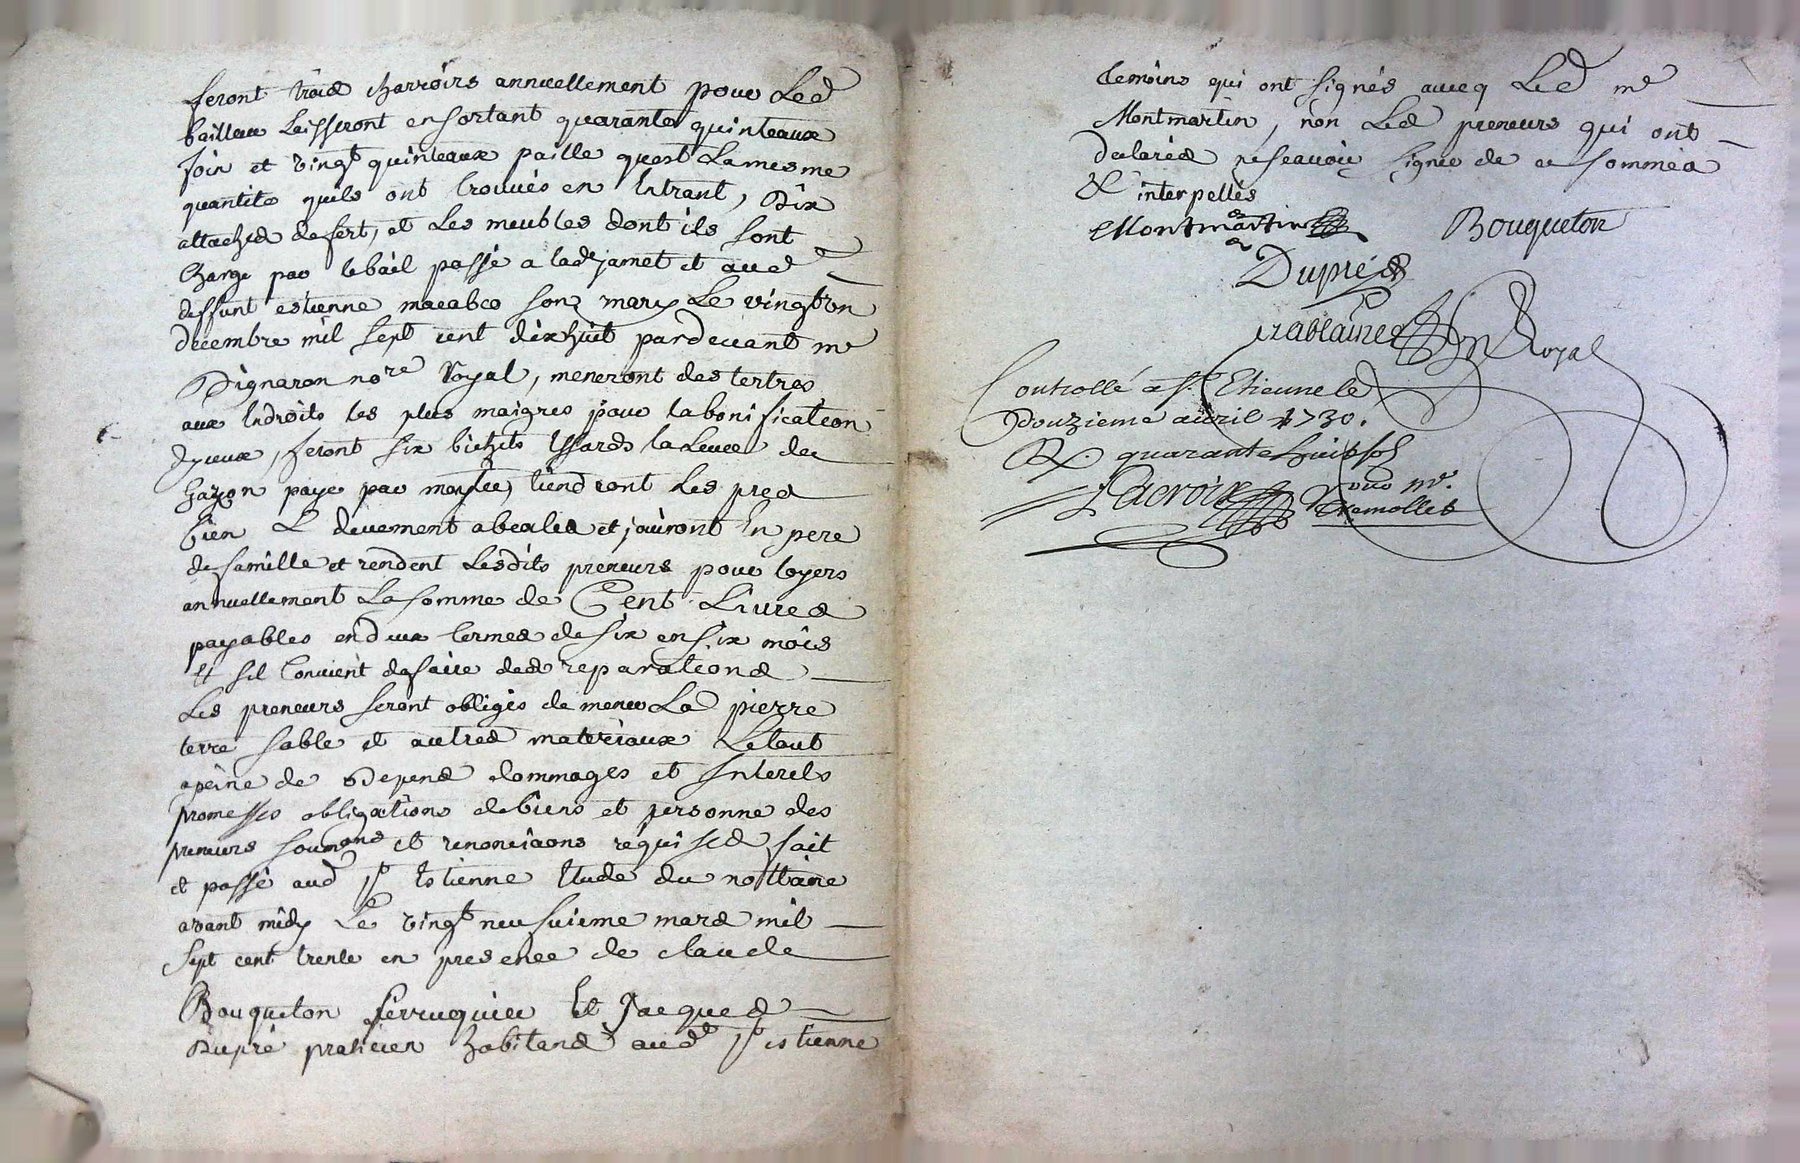 feront trois charroirs annuellement pour Led
bailleur Laisseront en sortant quarante quinteaux
foin et vingt quinteaux paille quest Lamesme
quantite quils ont trouvés en Entrant, Dix
attaches de fert, et Les meubles dont ils sont
charge par le bail passé a lad jamet et aud
deffunt estienne macabeo son mary Le vingt
decembre mil sept cent dixhuit pardevant me
Pignaron nore Royal, meneront des tertres
aux Endroits les plus maigres pour la bonification
dyceux, feront six bichets Essards la Levee du
Gazon paye par moytie, tiendront Les pres
bien & deuement abealés et jouiront En pere
de famille et rendent Lesdits preneurs pour loyers
annuellement La somme de Cent Livres
payables en deux termes de six en six mois
Et sil Convient de faire des reparations
Les preneurs seront obligés de mener La pierre
terre sable et autres materiaux Le tout
apeine de Depens dommages et Interets
promesses obligations de biens et personne des
preneurs soumons et renonciaons requises fait
et passé aud St Estienne Etude du nottaire
avant midy Le vingt neufvieme mars mil
sept cent trente en presence de claude
Bouqueton perruquier Et Jacques
Dupré praticien habitans aud St estienne
temoins qui ont signés avecq Led me
Montmartin, non Les preneurs qui ont
declarés ne scavoir signer de ce sommés
& interpellés
Montmartin Bouqueton
Dupré
Royal
Controllé a St Etienne le
Douzieme avril 1730.
R. quarante huit sols
Lacroix pour mr.
Tremollet